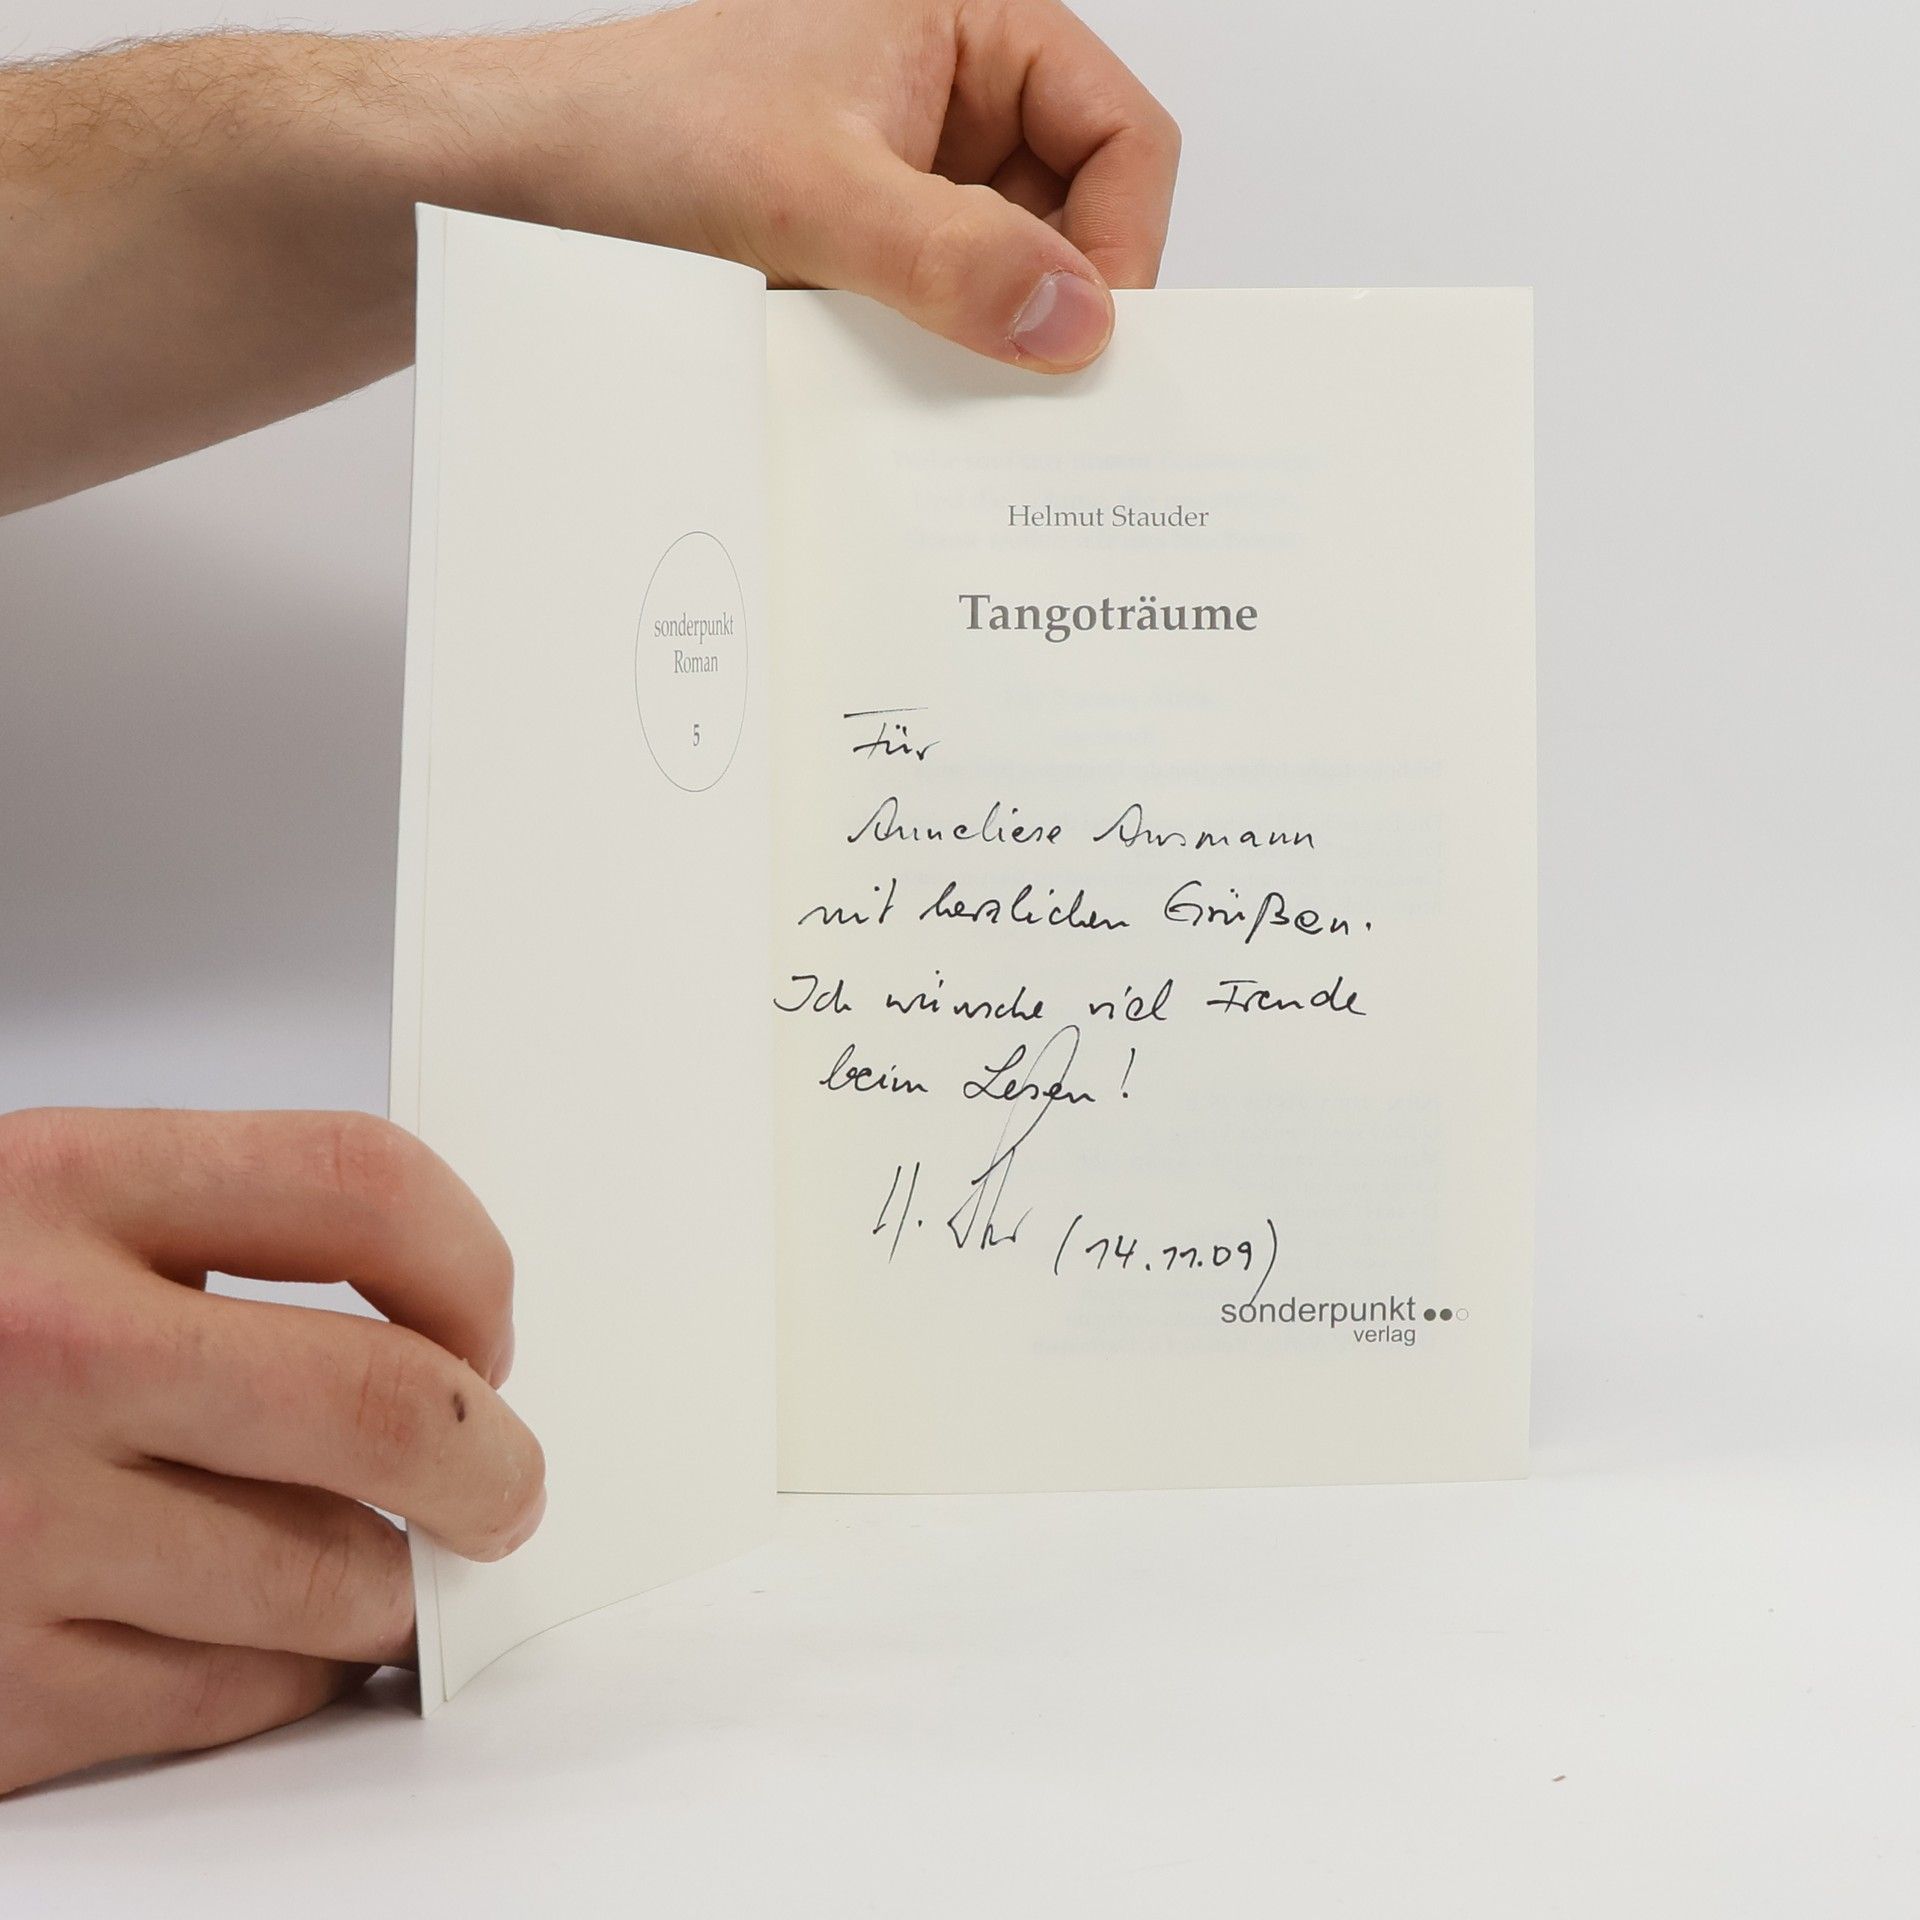 sonderpunkt
Roman
5
Helmut Stauder
Tangoträume
Für
Anneliese Ausmann
mit herzlichen Grüßen.
Ich wünsche viel Freude
beim Lesen!
H. (14.11.09)
sonderpunkt
verlag